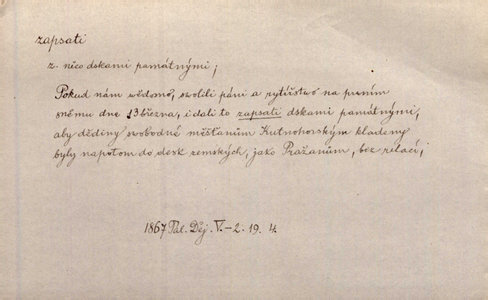 zapsati
z. něco dskami památnými;
Pokud nám wědomo, swolili páni a rytířstwo na prwním
sněmu dne 13 března, i dali to zapsati dskami památnými,
aby dědiny swobodné měšťanům Kutnohorským kladeny
byly napotom do desk zemských, jako Pražanům, bez relací;
1867 Pal. Děj. V.-2. 19. 4.